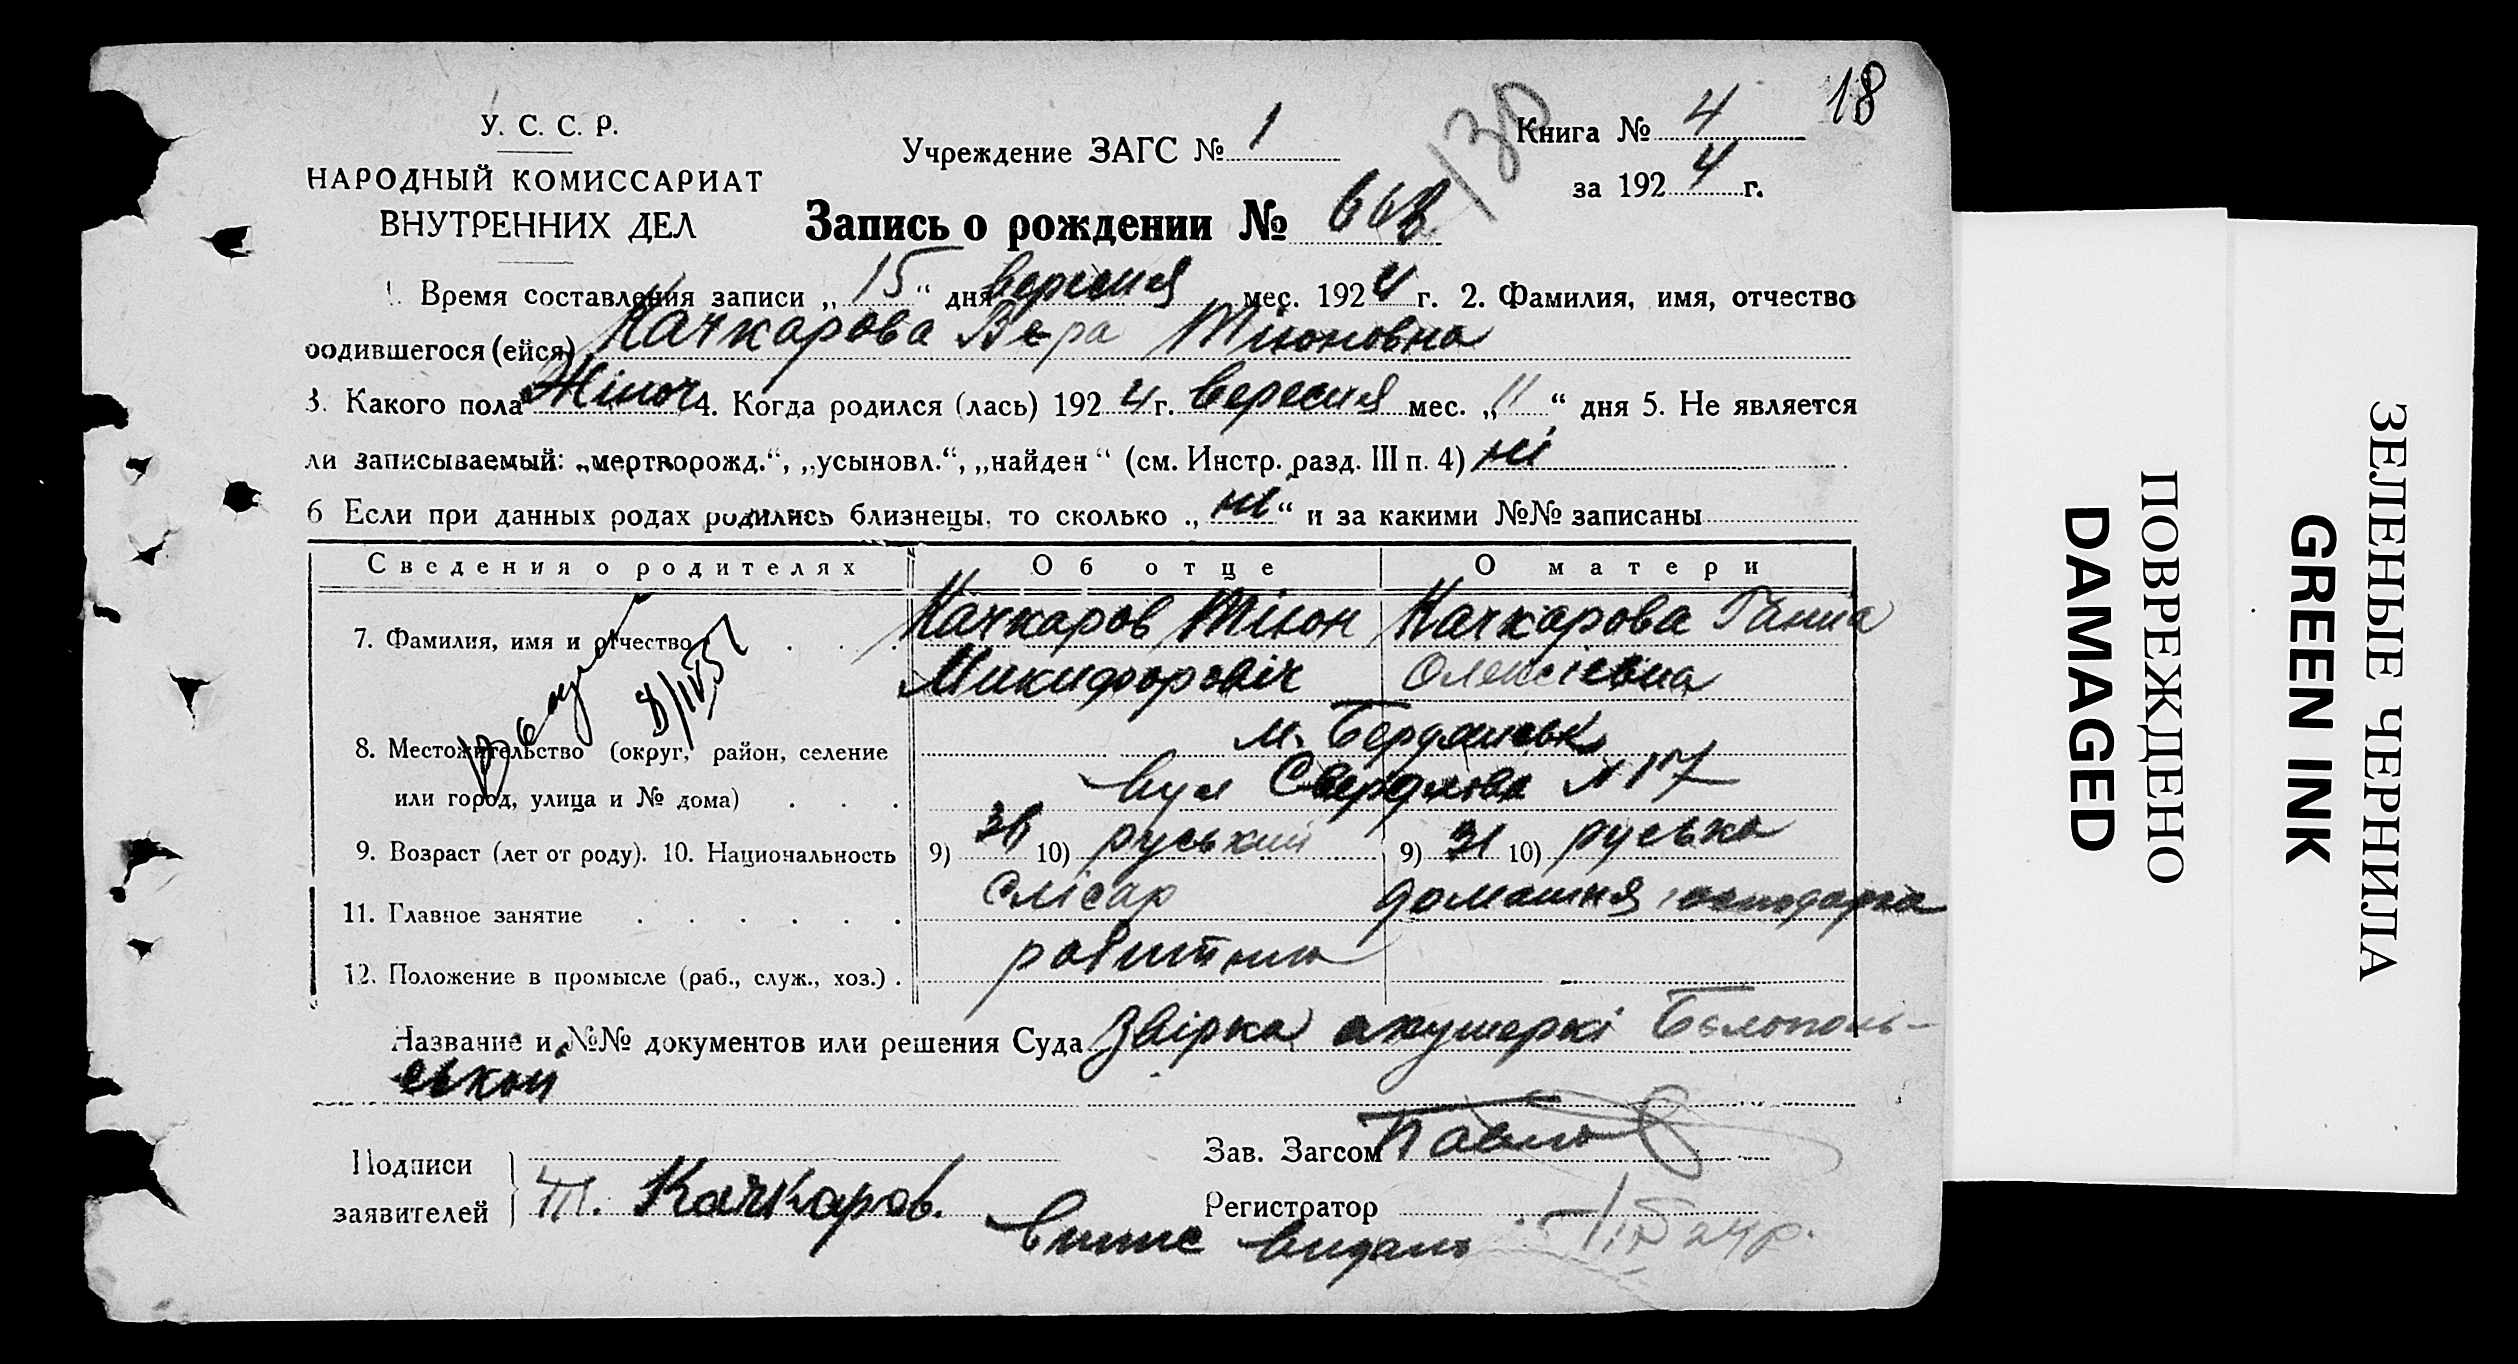 18
У. С. С. Р.
НАРОДНЫЙ КОМИССАРИАТ
ВНУТРЕННИХ ДЕЛ
Учреждение ЗАГС № 1
130
Книга № 4
за 1924 г.
Запись о рождении №
1. Время составления записи „15“ дня вересня мес. 1924 г. 2. Фамилия, имя, отчество
родившегося (ейся) Качкарова Вера Тихоновна
3. Какого пола Жіноч 4. Когда родился (лась) 1924 г. вересня мес. „11“ дня 5. Не является
ли записываемый: „мертворожд.“, „усыновл.“, „найден“ (см. Инстр. разд. III п. 4) ні
6 Если при данных родах родились близнецы, то сколько „ні“ и за какими №№ записаны
Сведения о родителях Об отце О матери
7. Фамилия, имя и отчество . . . Качкаров Тихон Качкарова Ганна
Микифоровіч Олексіевна
8. Местожительство (округ, район, селение м. Бердянськ
или город, улица и № дома) . . . вул Свердлова N 117
9. Возраст (лет от роду). 10. Национальность 9) 36 10) руський 9) 31 10) руська
11. Главное занятие . . . . . . Слісар домашня господарка
12. Положение в промысле (раб., служ., хоз.) . робитник
Название и №№ документов или решения Суда Звірка акушеркі Белополь-
ськой
Подписи
заявителей Т. Качкаров.
Зав. Загсом
Регистратор
Випис видано
ПОВРЕЖДЕНО
DAMAGED
ЗЕЛЕНЫЕ ЧЕРНИЛА
GREEN INK